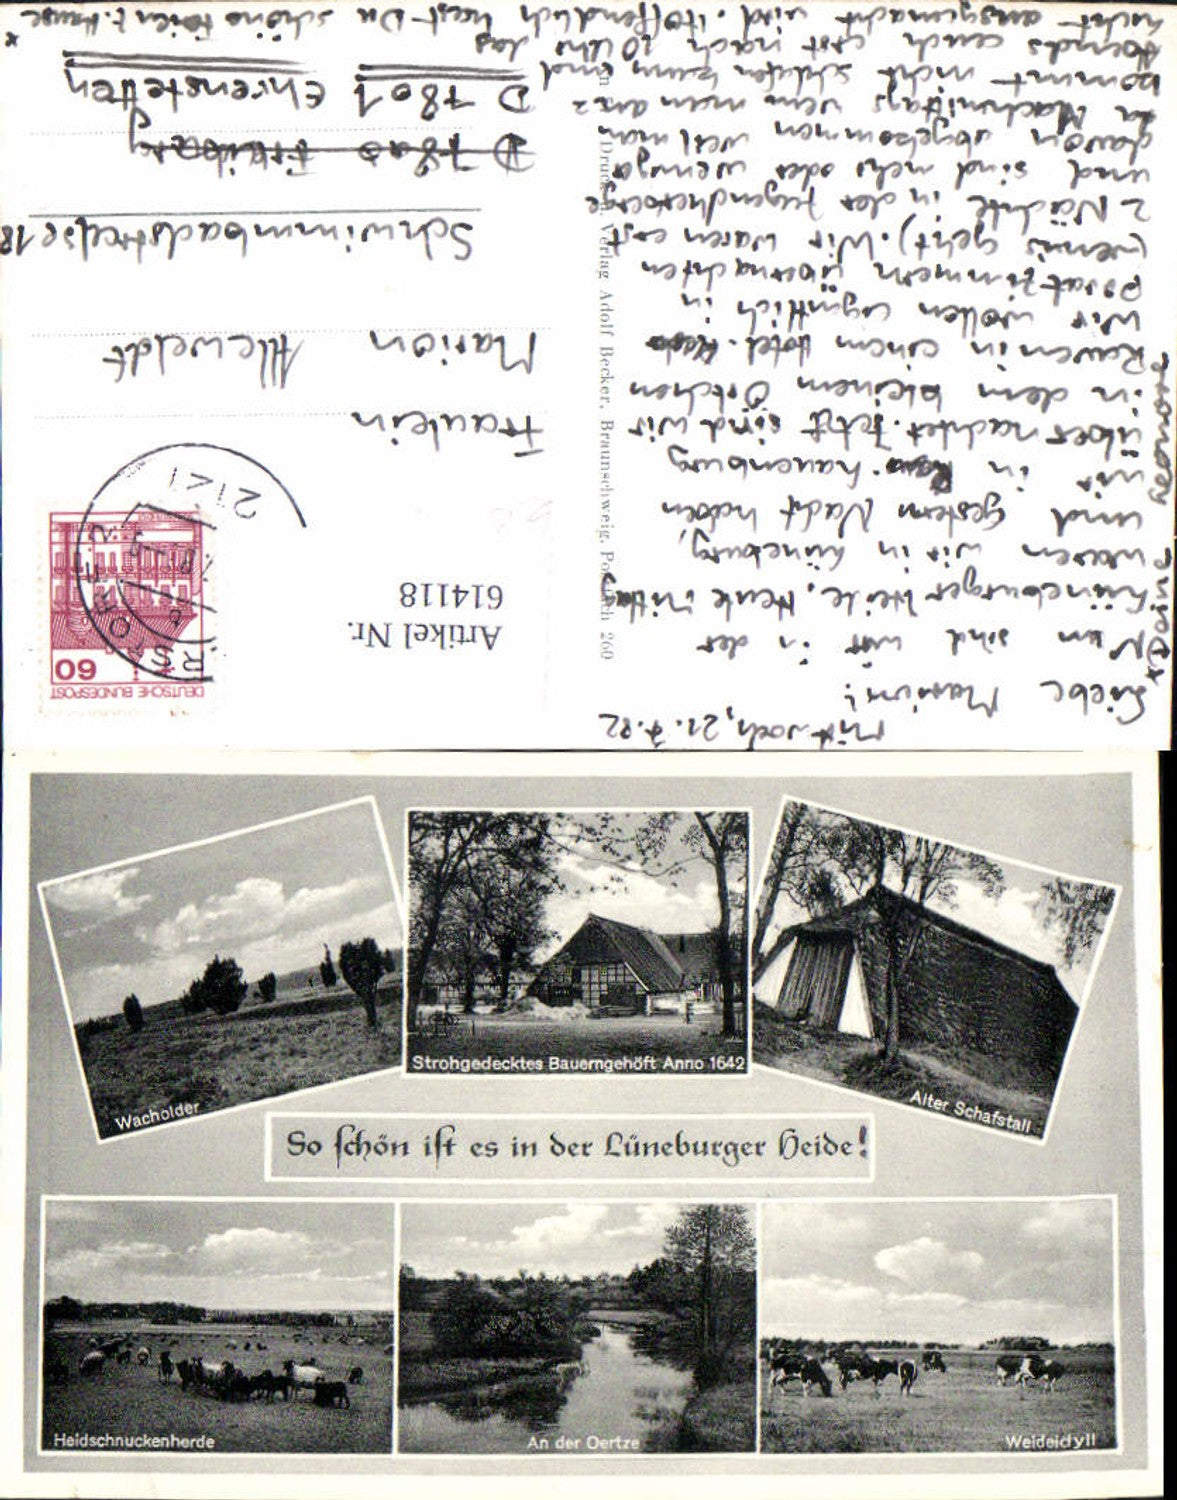 Mittwoch, 21.7.82
Liebe Marion!
Nun sind wir in der
Lüneburger Heide. Heute Mittag
waren wir in Lüneburg,
und gestern Nacht haben
wir in Lauenburg
übernachtet. Jetzt sind wir
in dem kleinem Örtchen
Raven in einem Hotel.
Wir wollen eigentlich in
Privatzimmern übernachten
(wenns geht). Wir waren erst
2 Nächte in der Jugendherberge
und sind mehr oder weniger
davon abgekommen weil man
da Nachmittags wenn man an-
kommt nicht schlafen kann und
Abends auch erst nach 10 Uhr das
Licht ausgemacht wird. Hoffendlich hast Du schöne Ferien z. Hause
Druck und Verlag Adolf Becker, Braunschweig, Postfach 260
Artikel Nr.
614118
DEUTSCHE BUNDESPOST
60
2121
Fräulein
Marion Alleweldt
Schwimmbadstraße 18
D 7800 Freiburg
D 7801 Ehrenstetten
Wacholder
Strohgedecktes Bauerngehöft Anno 1642
Alter Schafstall
So schön ist es in der Lüneburger Heide!
Heidschnuckenherde
An der Oertze
Weideidyll